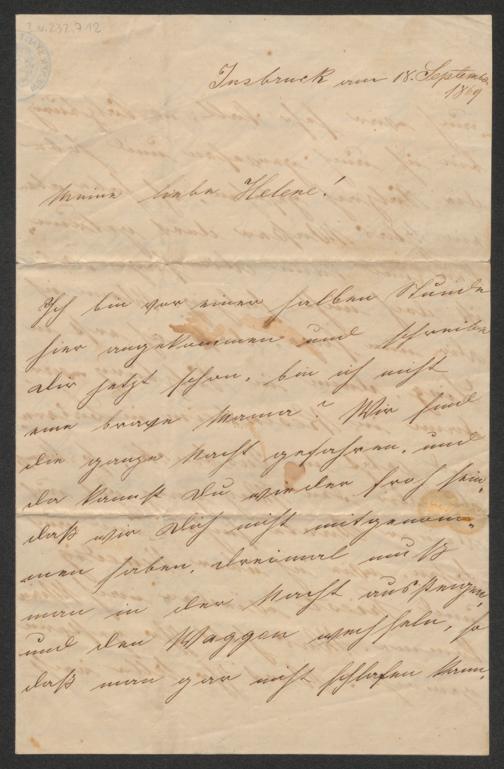 I.N.232.712
Insbruck am 18. September
1869
Meine liebe Helene!
Ich bin vor einer halben Stunde
hier angekommen und schreibe
Dir jetzt schon, bin ich nicht
eine brave Mama? Wir sind
die ganze Nacht gefahren, und
da kannst Du wieder froh sein,
daß wir Dich nicht mitgenom-
men haben. Dreimal muß
man in der Nacht aussteigen,
und den Waggon wechseln, so
daß man gar nicht schlafen kann.